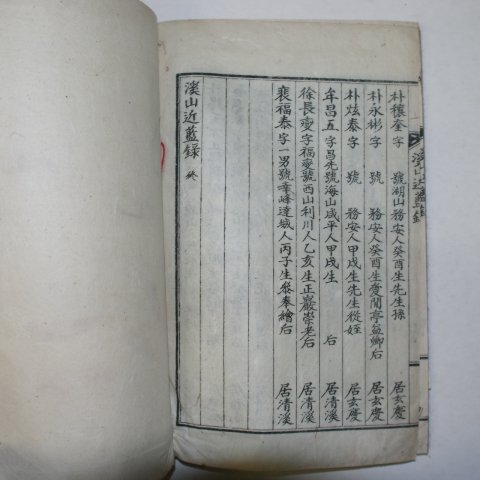 朴穰奎字 號湖山務安人癸酉生先生孫 居玄慶
朴永彬字 號 務安人癸酉生憂閒亭益卿后 居玄慶
朴炫泰字 號 務安人甲戌生先生從姪 居玄慶
牟昌五字昌先號海山咸平人甲戌生 后 居清溪
徐長燮字福燮號西山利川人乙亥生正嚴崇老后 居清溪
裵福泰字一男號峰達城人丙子生參奉繪后 居清溪
溪山近藍錄 終
溪山近藍錄